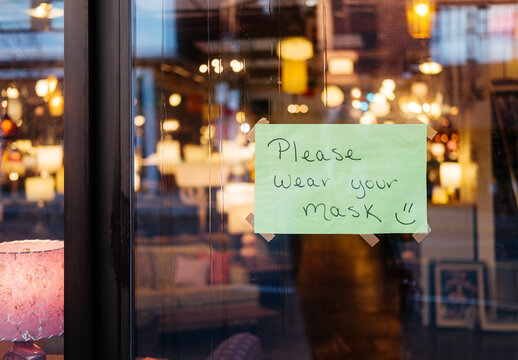 Please
wear your
mask ☺